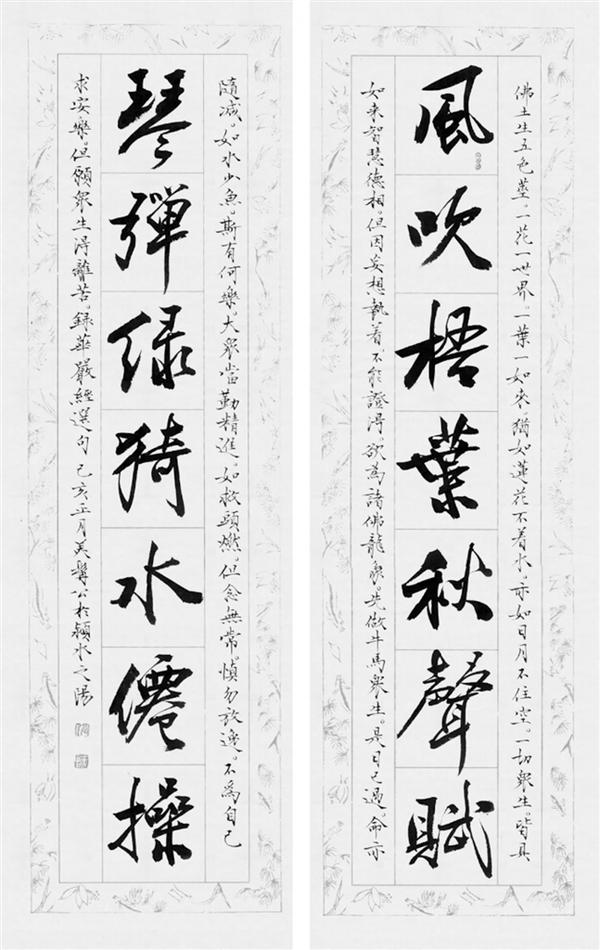 風吹梧葉秋聲賦
佛土生五色莖。一花一世界。一葉一如来。猶如蓮花不着水。亦如日月不住空。一切衆生。皆具
如来智慧德相。但因妄想執着不能證得。欲為諸佛龍象。先做牛馬衆生。是日已過。命亦
琴彈绿猗水僊操
隨減。如水少魚。斯有何樂。大衆當勤精進。如救頭燃。但念無常。慎勿放逸。不為自己
求安樂。但願衆生得離苦。録華嚴經選句 己亥正月美髯公於潁水之陽